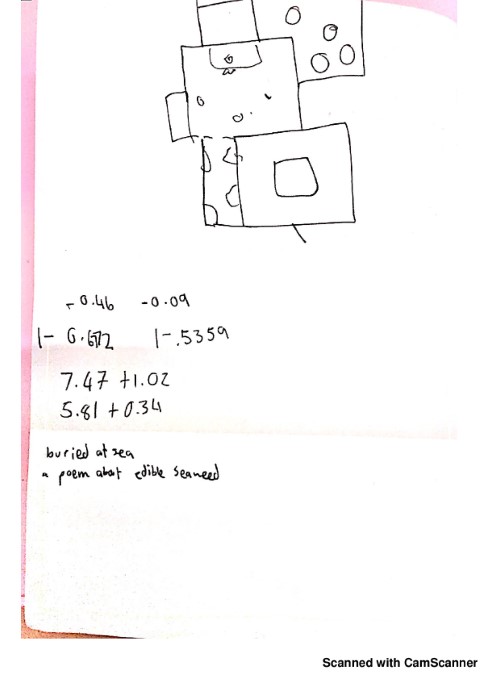 -0.46 -0.09
1- 0.672 1-.5359
7.47 +1.02
5.81 +0.34
buried at sea
a poem about edible seaweed
Scanned with CamScanner